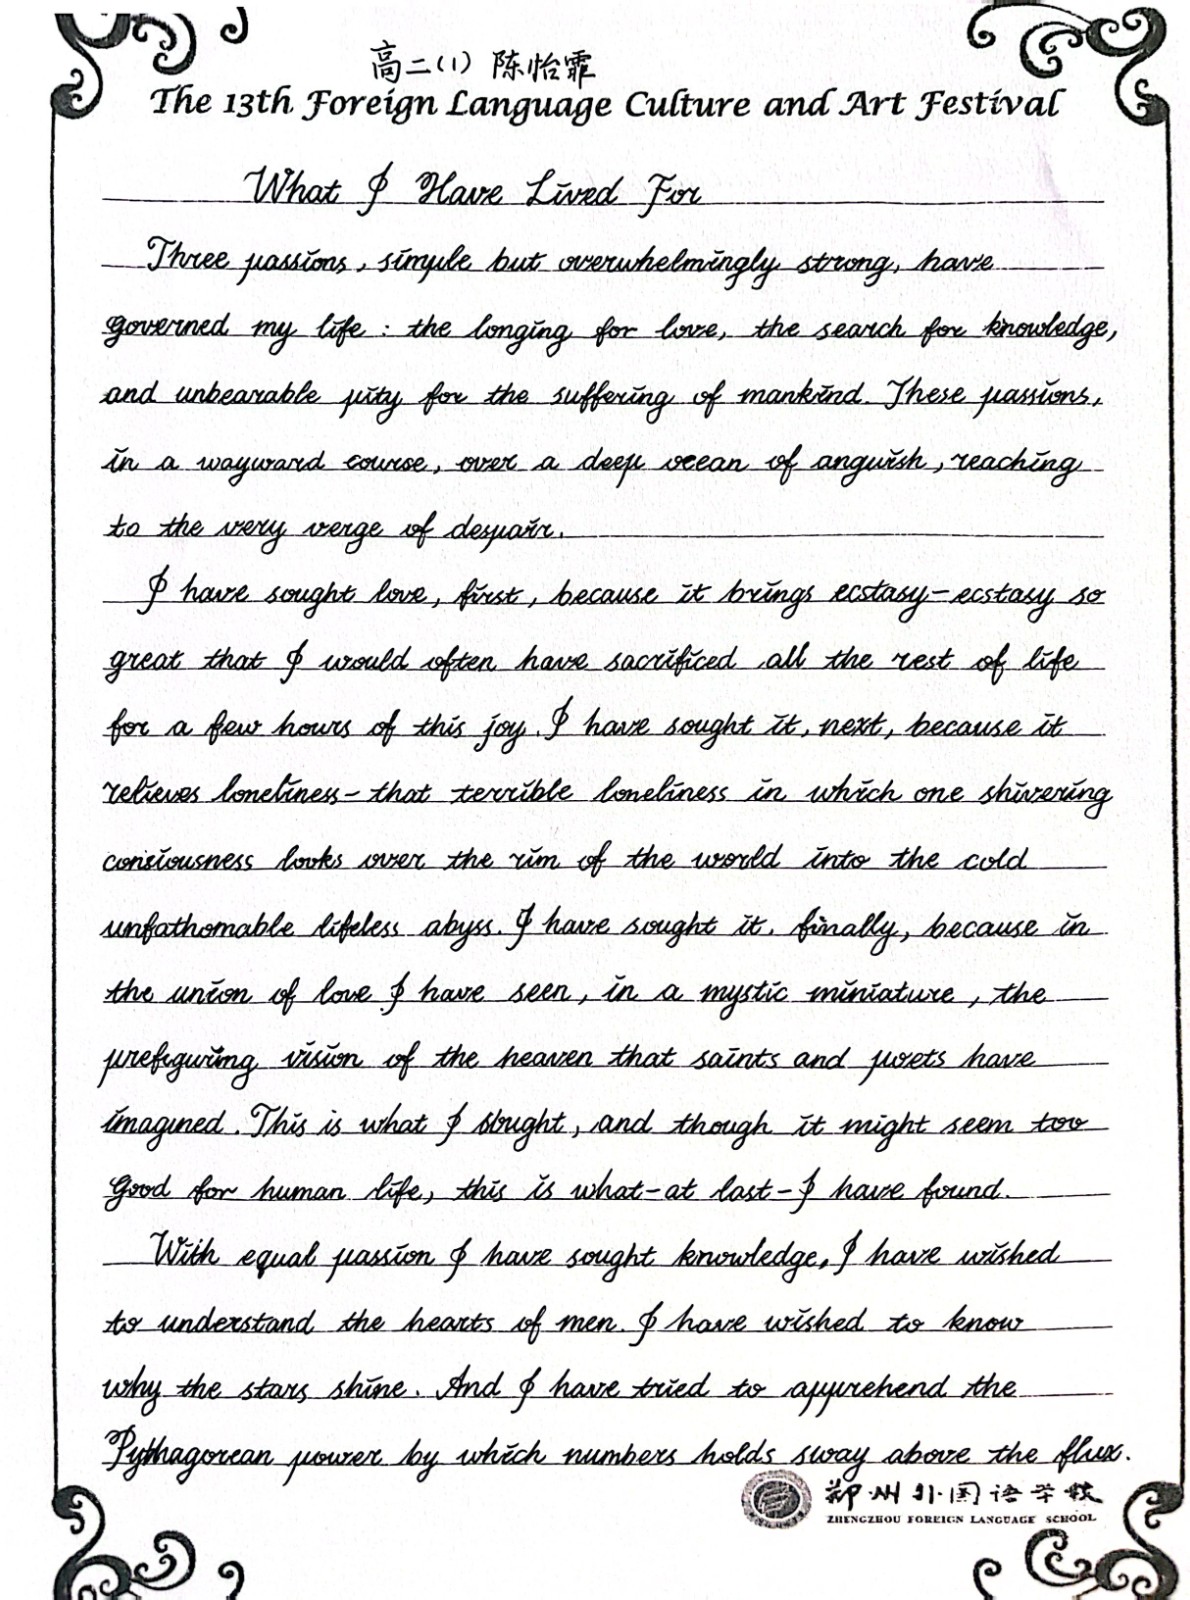 高二(1) 陈怡霏
The 13th Foreign Language Culture and Art Festival
What I Have Lived For
Three passions, simple but overwhelmingly strong, have
governed my life: the longing for love, the search for knowledge,
and unbearable pity for the suffering of mankind. These passions,
in a wayward course, over a deep ocean of anguish, reaching
to the very verge of despair.
I have sought love, first, because it brings ecstasy-ecstasy so
great that I would often have sacrificed all the rest of life
for a few hours of this joy. I have sought it, next, because it
relieves loneliness-that terrible loneliness in which one shivering
consiousness looks over the rim of the world into the cold
unfathomable lifeless abyss. I have sought it. finally, because in
the union of love I have seen, in a mystic miniature, the
prefiguring vision of the heaven that saints and poets have
imagined. This is what I sought, and though it might seem too
good for human life, this is what-at last-I have found.
With equal passion I have sought knowledge, I have wished
to understand the hearts of men. I have wished to know
why the stars shine. And I have tried to apprehend the
Pythagorean power by which numbers holds sway above the flux.
郑州外国语学校
ZHENGZHOU FOREIGN LANGUAGE SCHOOL